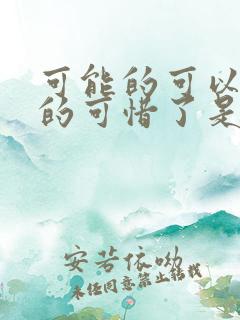 可能的可以
的可惜了是
安若依呦
未经同意禁止转载